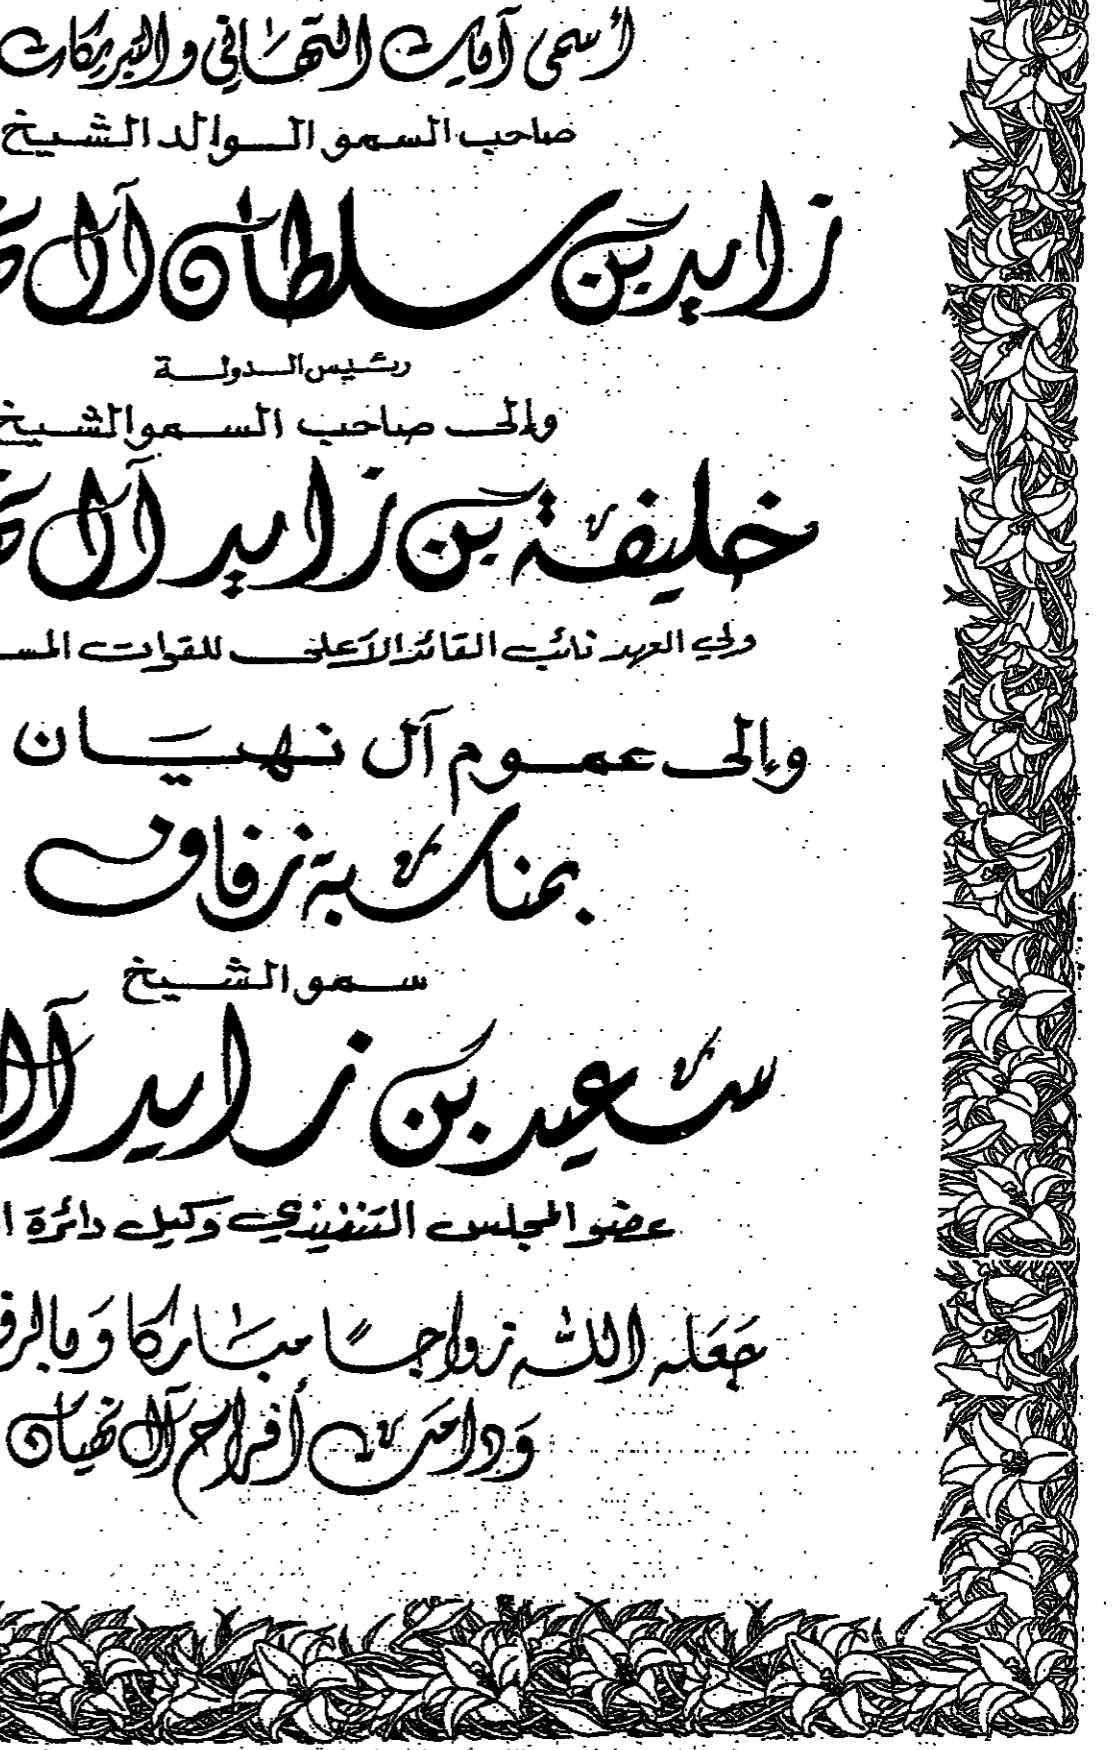 أسمى آيات التهاني والتبريكات
صاحب السمو الوالد الشيخ
زايد بن سلطان آل
رئيس الدولة
وإلى صاحب السمو الشيخ
خليفة بن زايد آل
ولي العهد نائب القائد الأعلى للقوات المس
وإلى عموم آل نهيان
بمناسبة زفاف
سمو الشيخ
سعيد بن زايد آل
عضو المجلس التنفيذي وكيل دائرة ا
جَعَله الله زواجًا مبَاركا وَبالرف
وَدامت أفراح آل نهيان